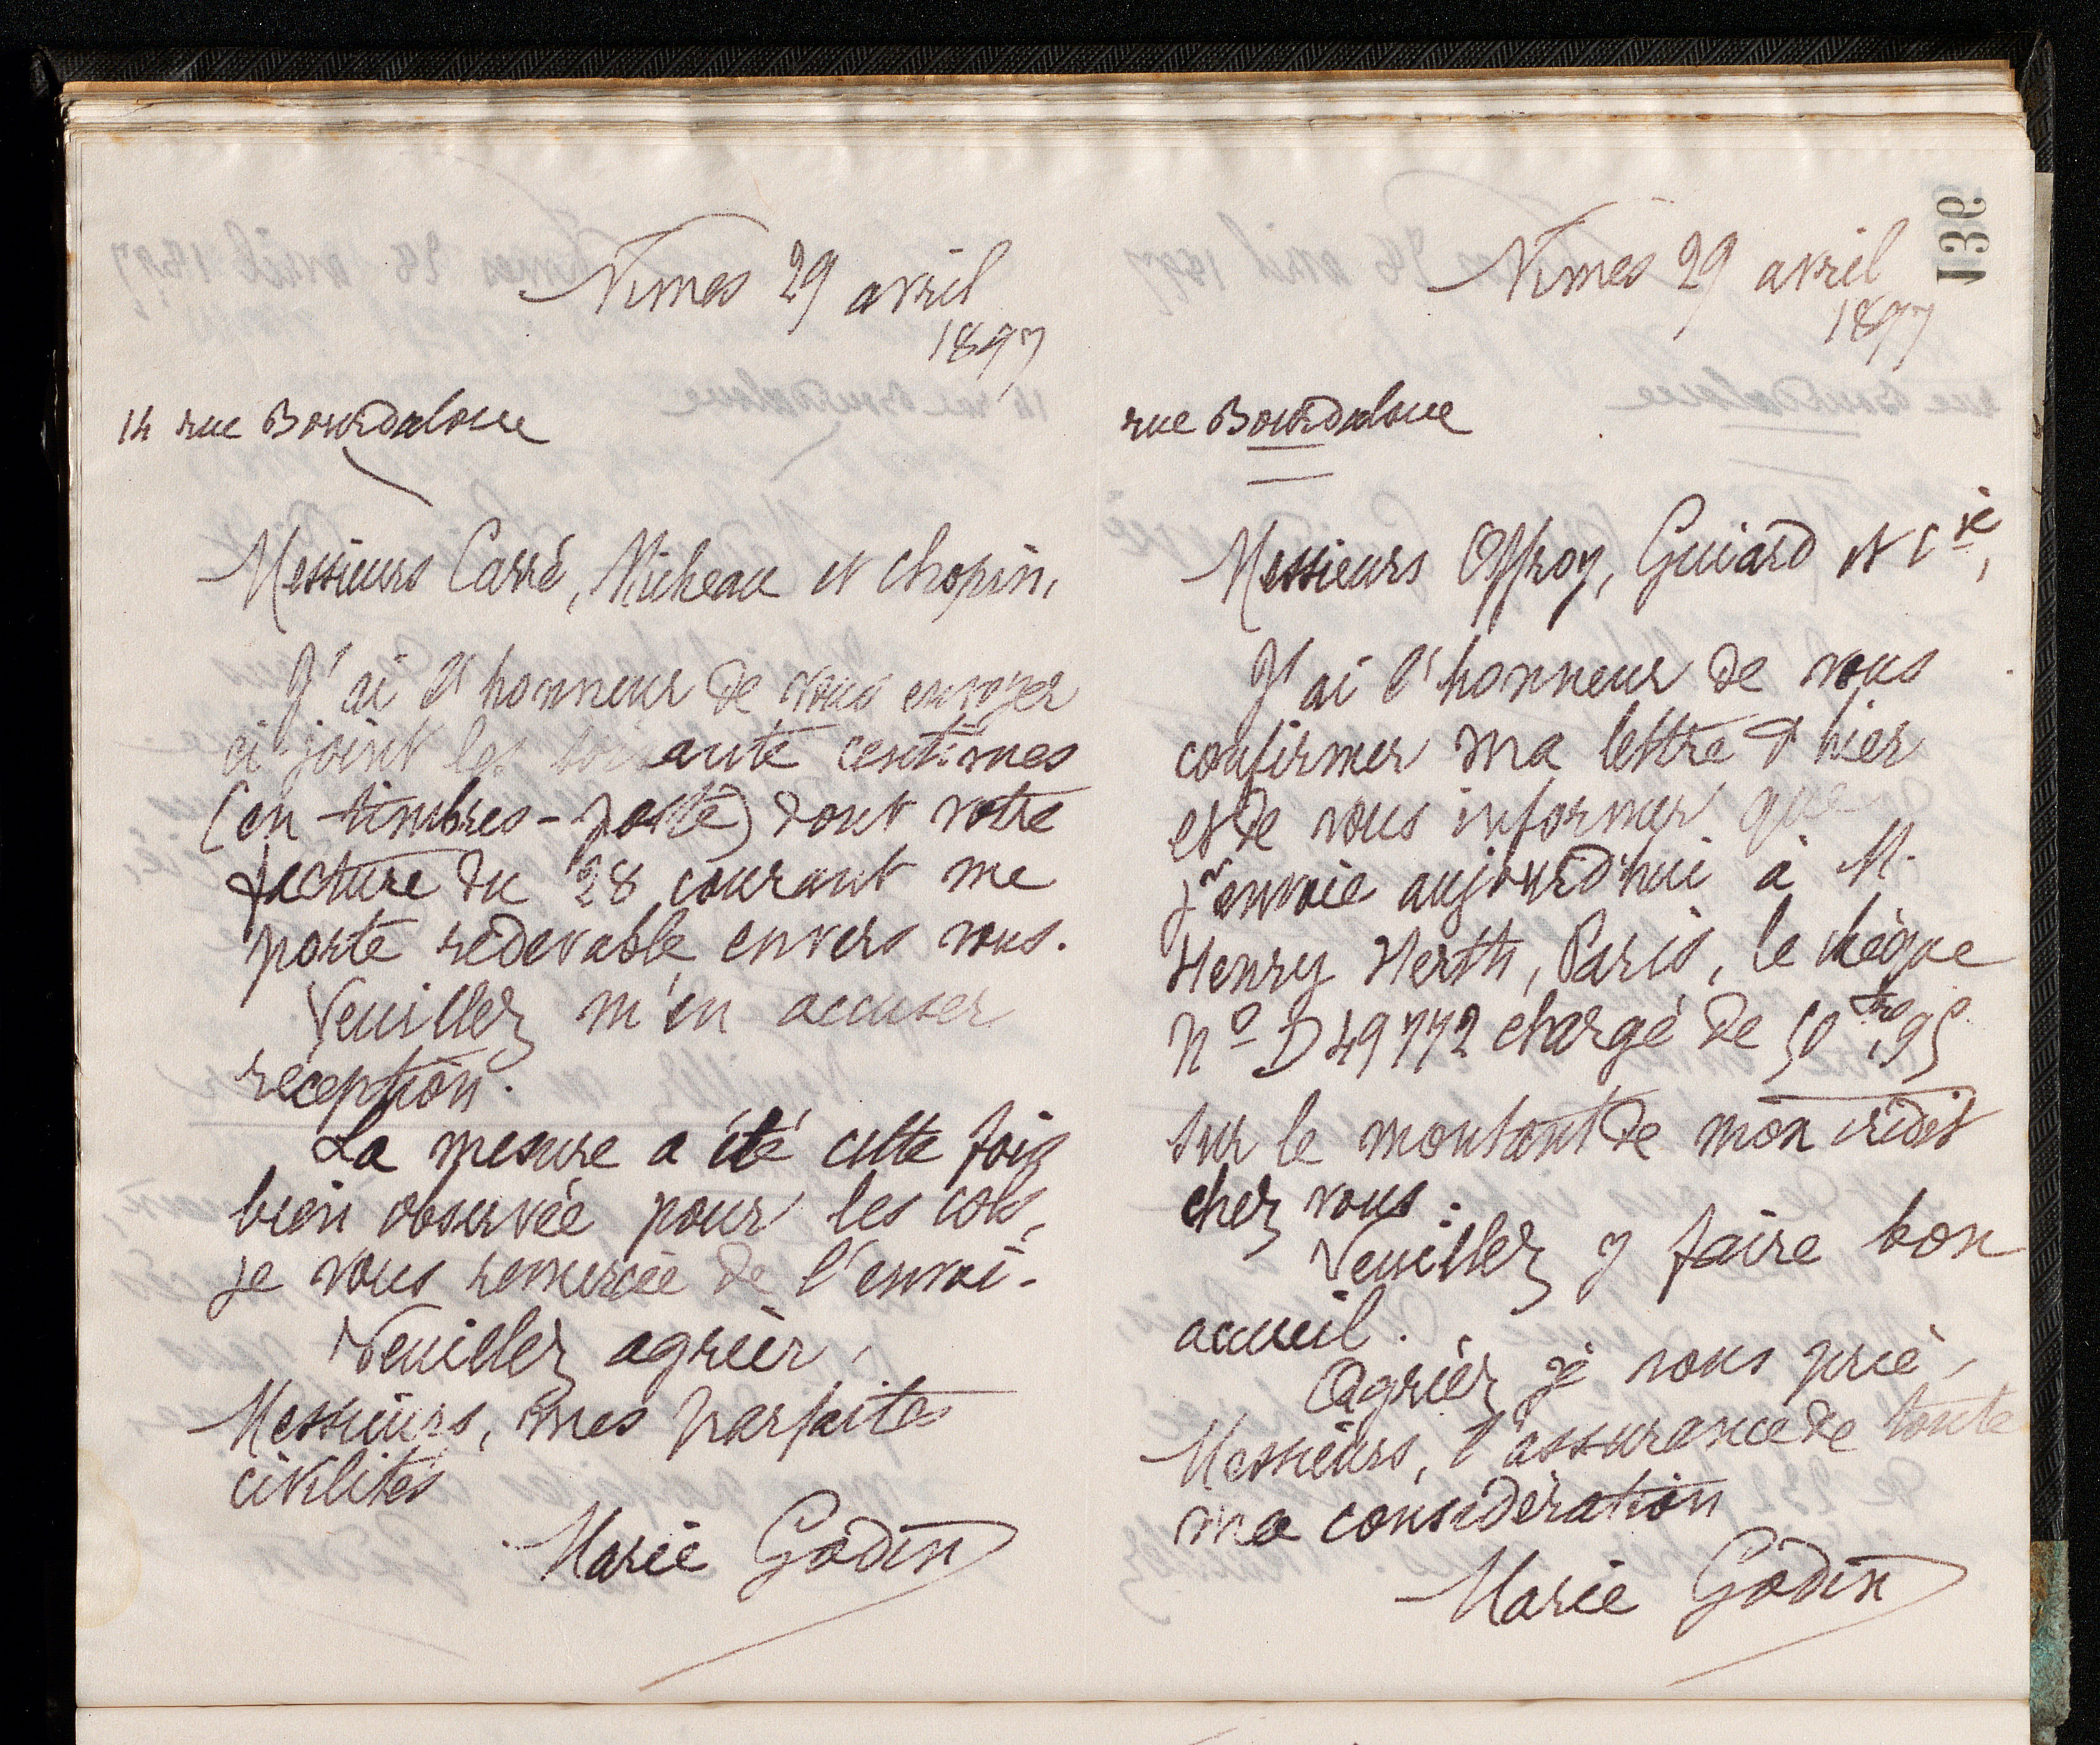 136
Nimes 29 avril
1897
14 rue Bourdaloue
Messieurs Carré, Micheau et Chopin,
J'ai l'honneur de vous envoyer
ci-joint les soixante centimes
(en timbres-poste) dont votre
facture du 28 courant me
porte redevable envers vous.
Veuillez m'en accuser
réception.
La mesure a été cette fois
bien observée pour les cols,
je vous remercie de l'envoi.
Veuillez agréer,
Messieurs, mes parfaites
civilités
Marie Godin
Nimes 29 avril
1897
rue Bourdaloue
Messieurs Offroy, Guiard et Cie,
J'ai l'honneur de vous
confirmer ma lettre d'hier
et de vous informer que
j'envoie aujourd'hui à M.
Henry Herth, Paris, le chèque
No D 49772 chargé de 50 fre,95
sur le montant de mon crédit
chez vous.
Veuillez y faire bon
accueil.
Agréez je vous prie,
Messieurs, l'assurance de toute
ma considération
Marie Godin